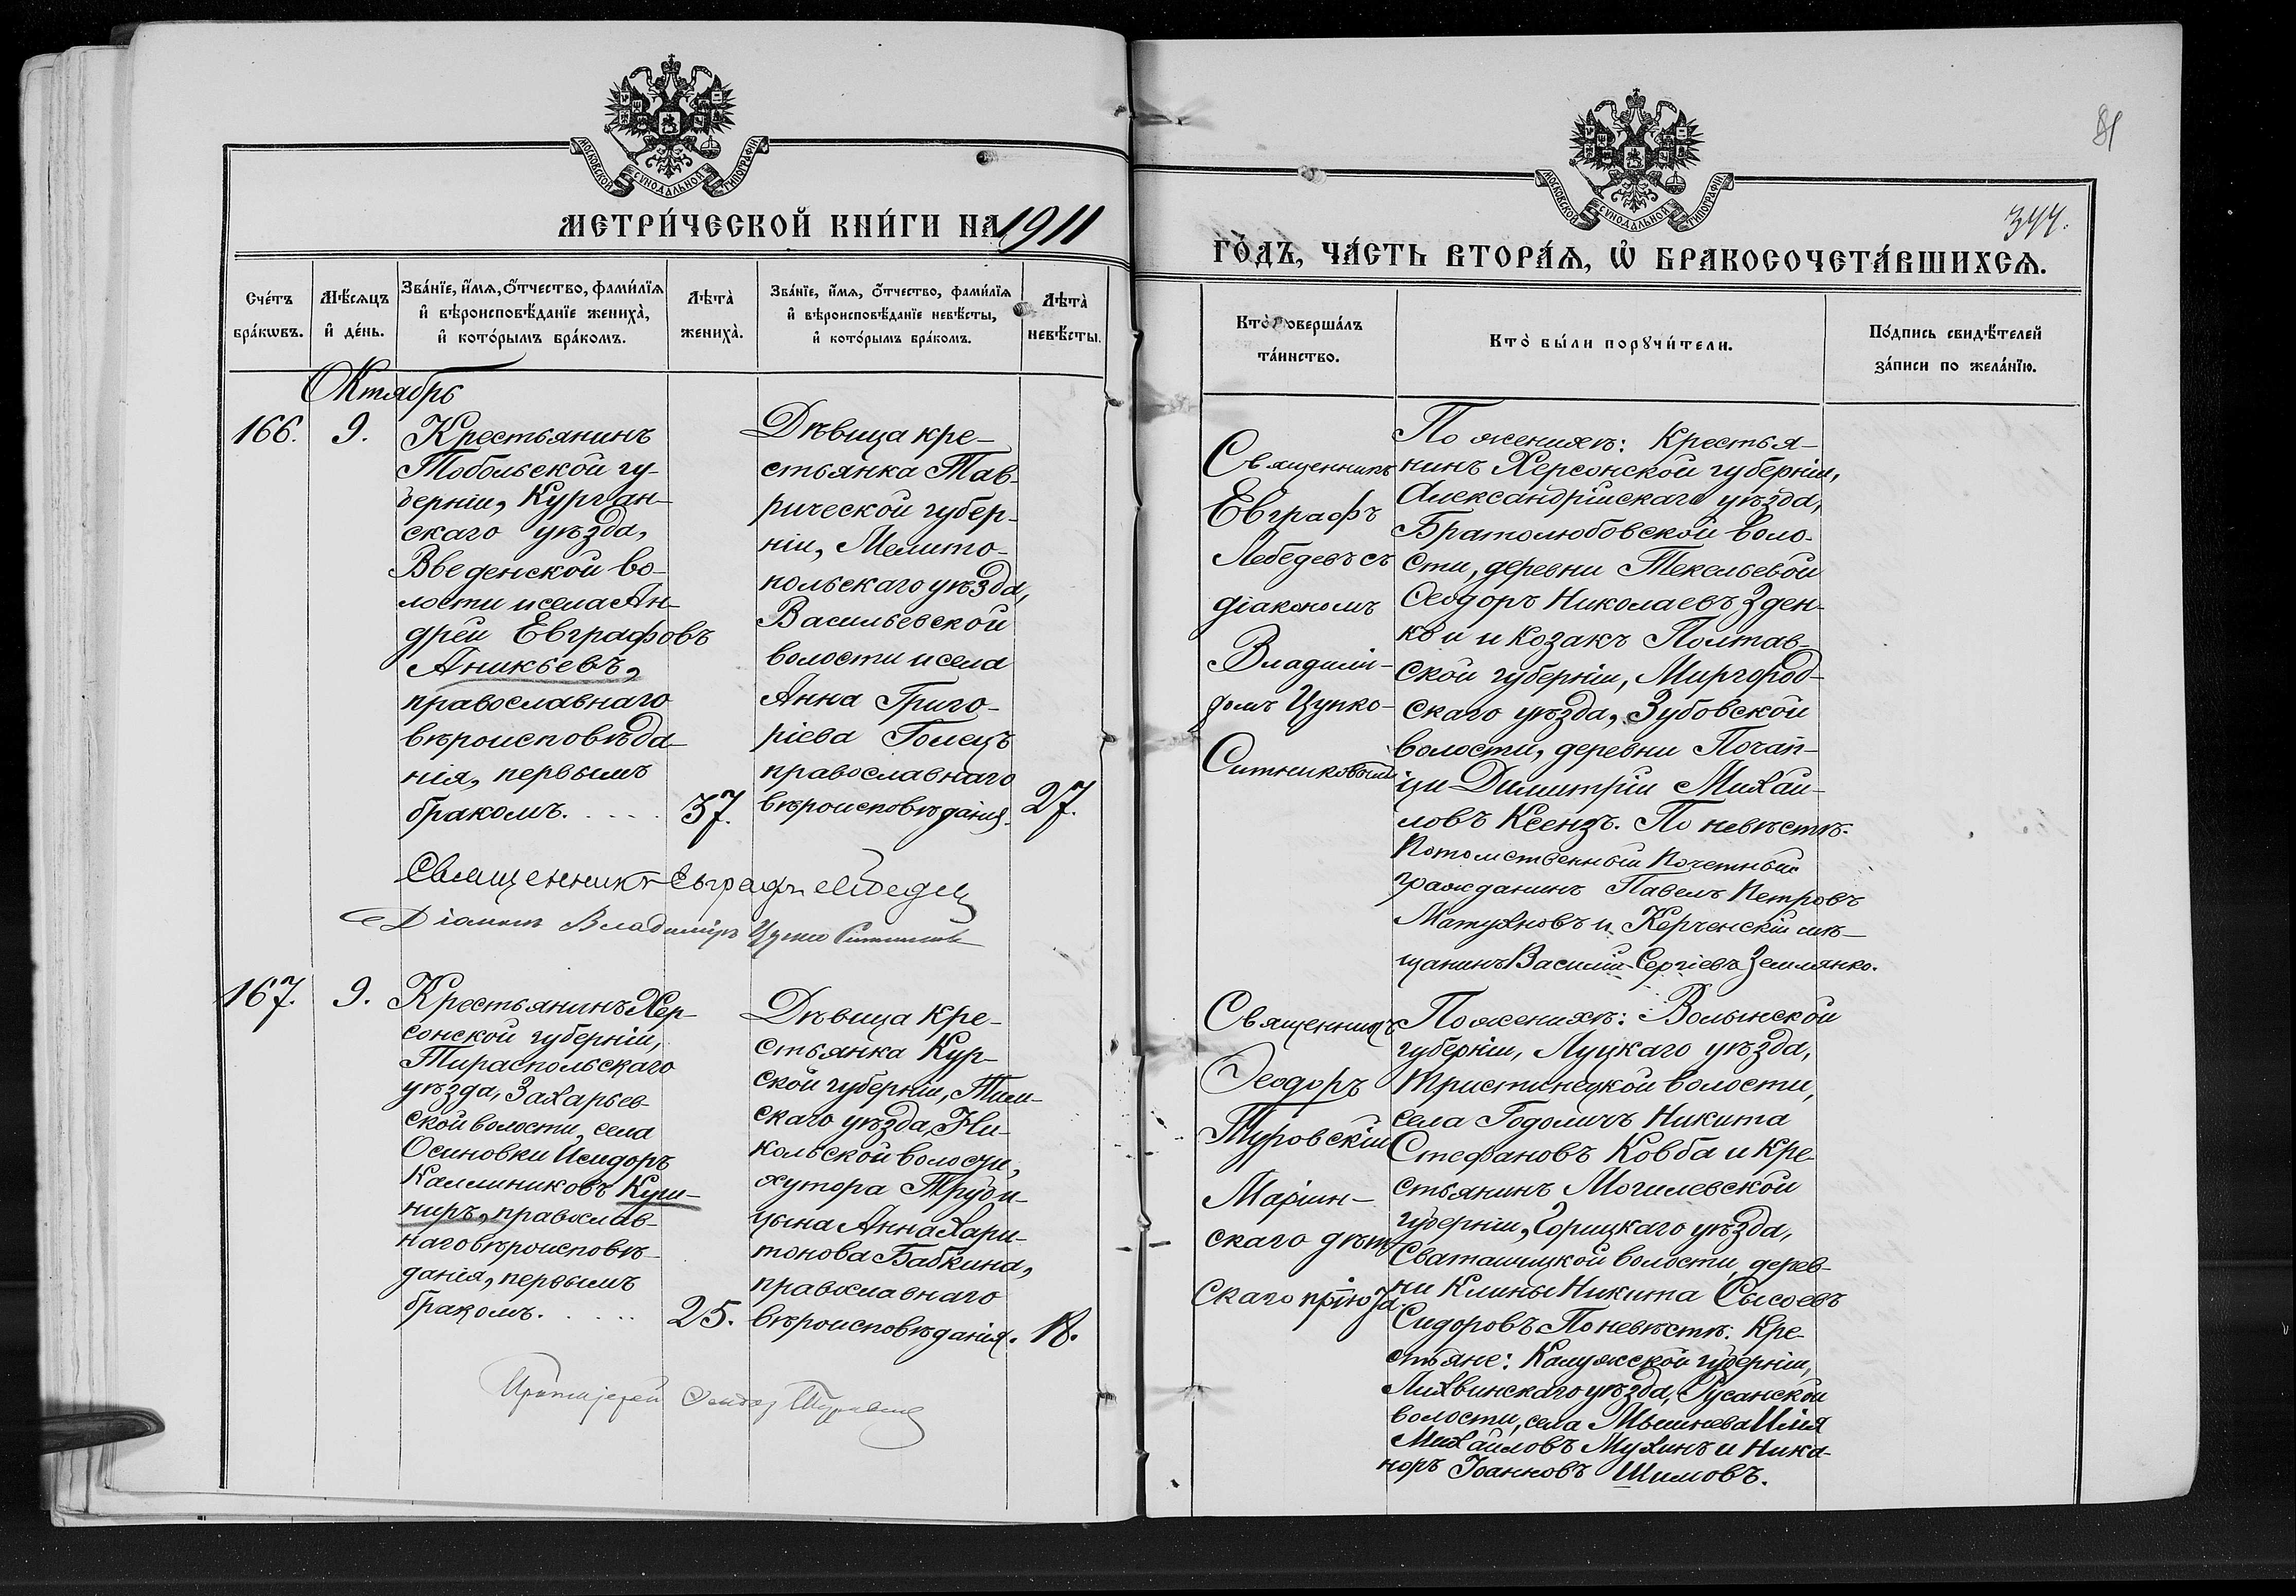 МОСКОВСКОЙ СѴНОДАЛЬНОЙ ТИПОГРАФІИ
МЕТРИ́ЧЕСКОЙ КНИ́ГИ НА 1911
Сче́тъ бра́кѡвъ.
Мѣ́сѧцъ и҆ де́нь.
Зва́нїе, и҆́мѧ, ѻ҆́тчество, фами́лїѧ и҆ вѣроисповѣ́данїе жениха̀, и҆ кото́рымъ бра́комъ.
Лѣта̀ жениха̀.
Зва́нїе, и҆́мѧ, ѻ҆́тчество, фами́лїѧ и҆ вѣроисповѣ́данїе невѣ́сты, и҆ кото́рымъ бра́комъ.
Лѣта̀ невѣ́сты.
Октябрь
166.
9.
Крестьянинъ
Тобольской гу-
берніи, Курган-
скаго уѣзда,
Введенской во-
лости и села Ан-
дрей Евграфовъ
Аникьевъ,
православнаго
вѣроисповѣда-
нія, первымъ
бракомъ. . . . .
37.
Дѣвица кре-
стьянка Тав-
рической губер-
ніи, Мелито-
польскаго уѣзда,
Васильевской
волости и села
Анна Григо-
ріева Голецъ
православнаго
вѣроисповѣданія.
27.
Священникъ Евграфъ Лебедевъ
Діаконъ Владимиръ Цупко Ситниковъ
167.
9.
Крестьянинъ Хер-
сонской губерніи,
Тираспольскаго
уѣзда, Захарьев-
ской волости, села
Осиновки Исидоръ
Каллиниковъ Куш-
ниръ, православ-
наго вѣроисповѣ-
данія, первымъ
бракомъ. . . . . .
25.
Дѣвица кре-
стьянка Кур-
ской губерніи, Тим-
скаго уѣзда, Ни-
кольской волости,
хутора Труби-
цына Анна Хари-
тонова Бабкина,
православнаго
вѣроисповѣданія.
18.
Протоіерей Ѳеодоръ Туровскій
81
МОСКОВСКОЙ СѴНОДАЛЬНОЙ ТИПОГРАФІИ
344.
ГО́ДЪ, ЧА́СТЬ ВТОРА́Ѧ, Ѡ҆ БРАКОСОЧЕТА́ВШИХСѦ.
Кто̀ соверша́лъ та́инство.
Кто̀ бы́ли порꙋчи́тели.
По́дпись свидѣ́телей за́писи по жела́нїю.
Священникъ
Евграфъ
Лебедевъ съ
діакономъ
Владимі-
ромъ Цупко-
Ситниковымъ
По женихѣ: Крестья-
нинъ Херсонской губерніи,
Александрійскаго уѣзда,
Братолюбовской воло-
сти, деревни Текельевой
Ѳеодоръ Николаевъ Зден-
кѣи и Козакъ Полтав-
ской губерніи, Миргород-
скаго уѣзда, Зубовской
волости, деревни Почап-
ци Димитрій Михай-
ловъ Ксензъ. По невѣстѣ:
Потомственный Почетный
гражданинъ Павелъ Петровъ
Матухновъ и Керченскій мѣ-
щанинъ Василій Сергіевъ Землянко.
Священникъ
Ѳеодоръ
Туровскій
Маріин-
скаго дѣт-
скаго пріюта.
По женихѣ: Волынской
губерніи, Луцкаго уѣзда,
Тристинецкой волости,
села Годомичъ Никита
Стефановъ Ковба и Кре-
стьянинъ Могилевской
губерніи, Горицкаго уѣзда,
Сваташицкой волости, дерев-
ни Клины Никита Сысоевъ
Сидоровъ По невѣстѣ: Кре-
стьяне: Калужской губерніи,
Лихвинскаго уѣзда, Русанской
волости, села Мышнева Илія
Михайловъ Мухинъ и Ника-
норъ Іоанновъ Шимовъ.